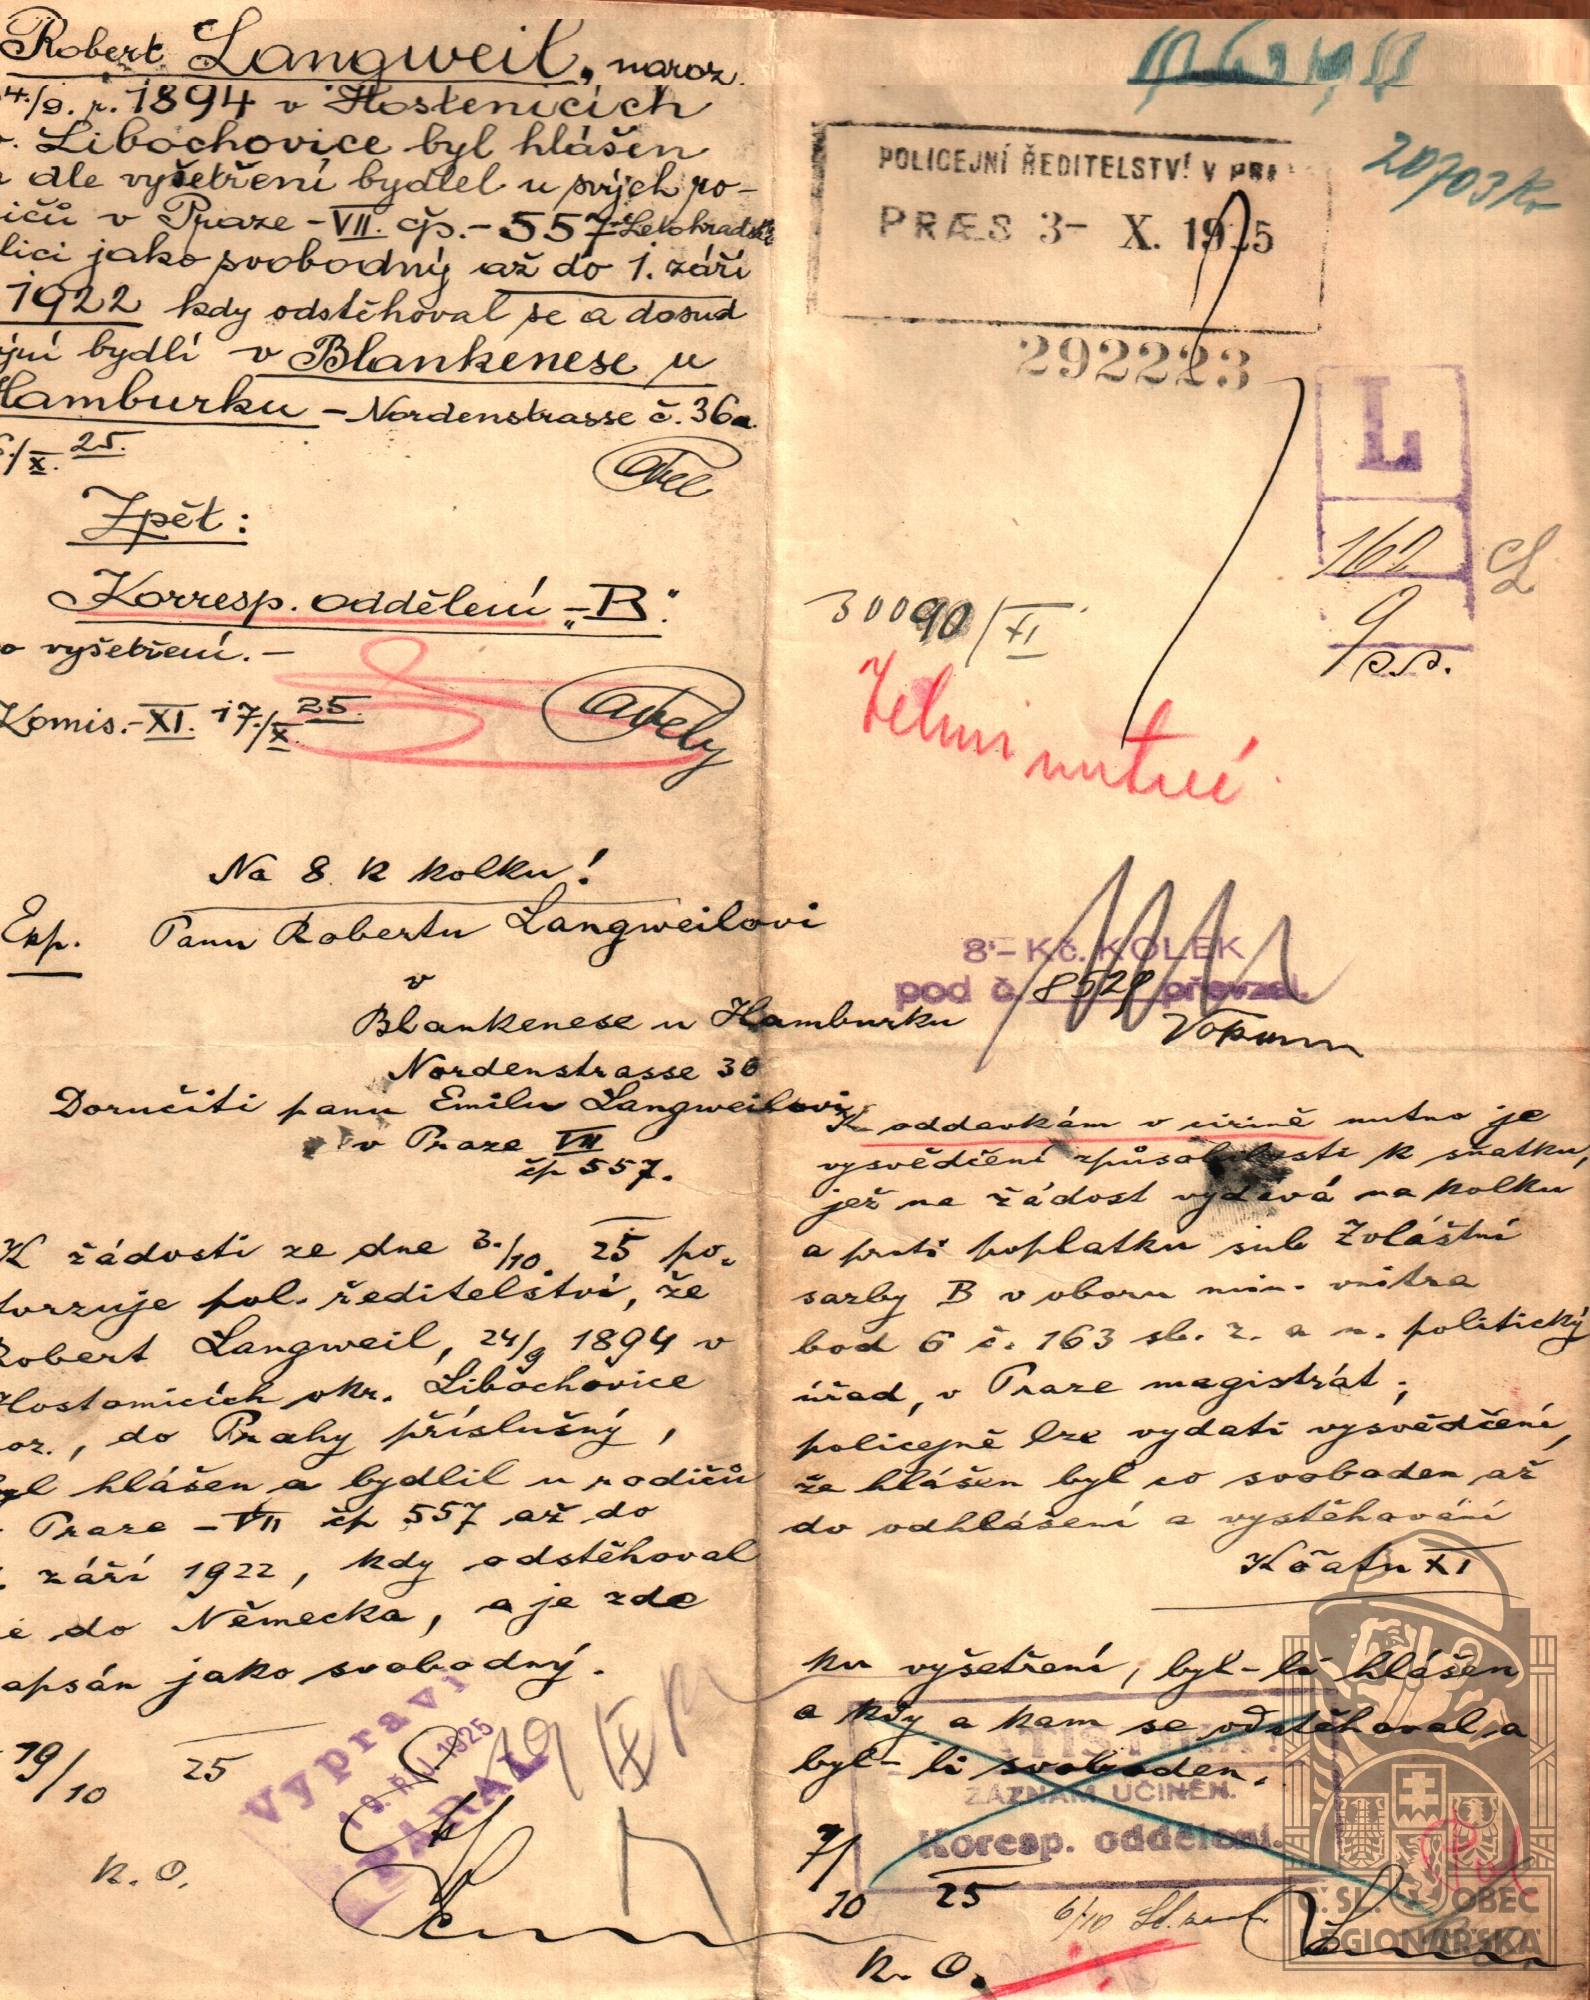 Robert Langweil, naroz.
4./9. r. 1894 v Hostenicích
Libochovice byl hlášen
a dle vyšetření bydlel u svých ro-
ičů v Praze -VII. čp.- 557- Letohradské
lici jako svobodný až do 1. září
1922 kdy odstěhoval se a dosud
ní bydlí v Blankenese u
Hamburku - Nordenstrasse č. 36a
/X. 25.
Zpět:
Korresp. oddělení „B"
o vyšetření.-
Komis.-XI. 17./X. 25.
Na 8 K kolku!
Exp. Panu Robertu Langweilovi
v
Blankenese u Hamburku
Nordenstrasse 36
Doručiti panu Emilu Langweilovi
v Praze VII
čp 557.
K žádosti ze dne 3./10. 25 po-
tvrzuje pol. ředitelství, že
Robert Langweil, 24/9 1894 v
Hostomicích okr. Libochovice
oz., do Prahy příslušný,
yl hlášen a bydlil u rodičů
Praze -VII čp 557 až do
září 1922, kdy odstěhoval
e do Německa, a je zde
apsán jako svobodný.
19/10 25
K. O.
Vypraví
19. ŘÍJ. 1925
FARAL
19/X
POLICEJNÍ ŘEDITELSTVÍ V PRA
PRÆS 3- X. 1925
292223
20703 Kr
L
162
9
p.p.
30090/XI
Velmi nutné
8'- Kč. KOLEK
pod č. 8528 převzal.
K oddavkám v cizině nutno je
vysvědčení způsobilosti k sňatku,
jež na žádost vydává na kolku
a proti poplatku sub Zvláštní
sazby B v oboru min. vnitra
bod 6 č. 163 sb. z. a n. politický
úřad, v Praze magistrát;
policejně lze vydati vysvědčení,
že hlášen byl co svoboden až
do odhlášení a vystěhování
Kőatu XI
ku vyšetření, byl-li hlášen
a kdy a kam se odstěhoval a
byl-li svoboden.
ZÁZNAM UČINĚN.
Koresp. oddělení.
7/10 25
6/10
K. O.
Č. SL. OBEC
LEGIONÁŘSKÁ